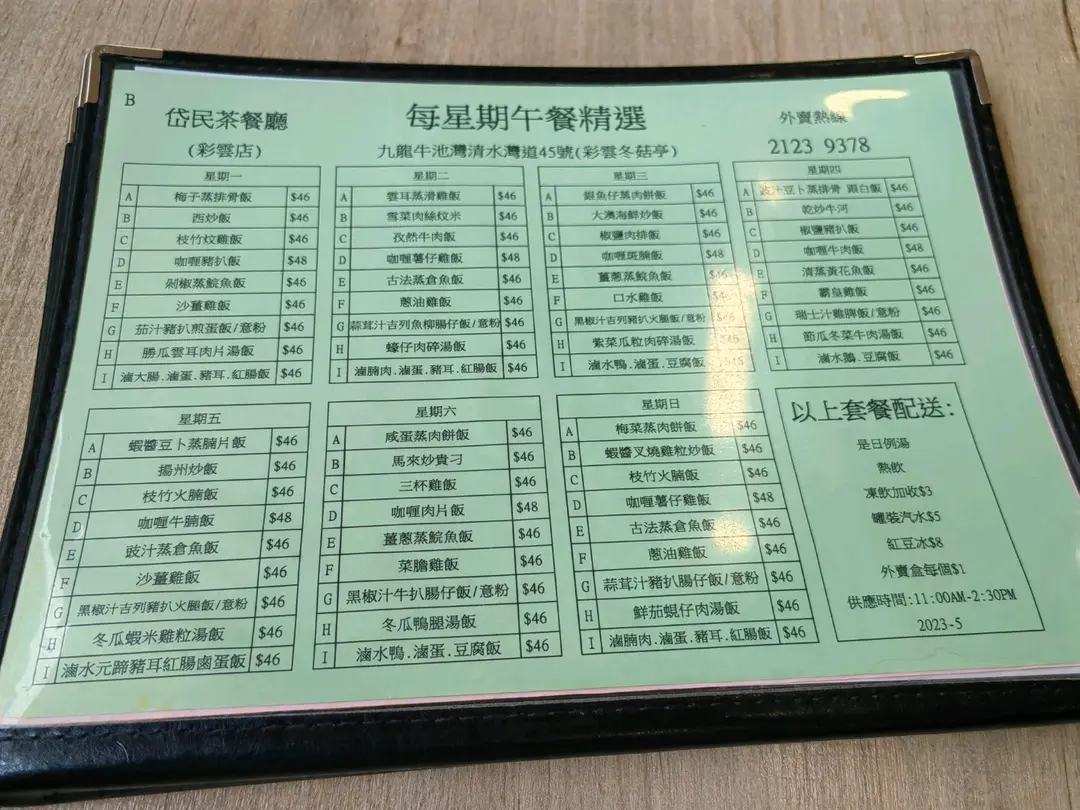 B
岱民茶餐廳
(彩雲店)
每星期午餐精選
九龍牛池灣清水灣道45號(彩雲冬菇亭)
外賣熱線
2123 9378
星期一
A 梅子蒸排骨飯 $46
B 西炒飯 $46
C 枝竹炆雞飯 $46
D 咖喱豬扒飯 $48
E 剁椒蒸鯇魚飯 $46
F 沙薑雞飯 $46
G 茄汁豬扒煎蛋飯/意粉 $46
H 勝瓜雲耳肉片湯飯 $46
I 滷大腸.滷蛋.豬耳.紅腸飯 $46
星期二
A 雲耳蒸滑雞飯 $46
B 雪菜肉絲炆米 $46
C 孜然牛肉飯 $46
D 咖喱薯仔雞飯 $48
E 古法蒸倉魚飯 $46
F 蔥油雞飯 $46
G 蒜茸汁吉列魚柳腸仔飯/意粉 $46
H 蠔仔肉碎湯飯 $46
I 滷腩肉.滷蛋.豬耳.紅腸飯 $46
星期三
A 銀魚仔蒸肉餅飯 $46
B 大澳海鮮炒飯 $46
C 椒鹽肉排飯 $46
D 咖喱斑腩飯 $48
E 薑蔥蒸鯇魚飯 $46
F 口水雞飯 $46
G 黑椒汁吉列豬扒火腿飯/意粉 $46
H 紫菜瓜粒肉碎湯飯 $46
I 滷水鴨.滷蛋.豆腐飯 $46
星期四
A 豉汁豆卜蒸排骨 跟白飯 $46
B 乾炒牛河 $46
C 椒鹽豬扒飯 $46
D 咖喱牛肉飯 $48
E 清蒸黃花魚飯 $46
F 霸皇雞飯 $46
G 瑞士汁雞脾飯/意粉 $46
H 節瓜冬菜牛肉湯飯 $46
I 滷水鵝.豆腐飯 $46
星期五
A 蝦醬豆卜蒸腩片飯 $46
B 揚州炒飯 $46
C 枝竹火腩飯 $46
D 咖喱牛腩飯 $48
E 豉汁蒸倉魚飯 $46
F 沙薑雞飯 $46
G 黑椒汁吉列豬扒火腿飯/意粉 $46
H 冬瓜蝦米雞粒湯飯 $46
I 滷水元蹄豬耳紅腸鹵蛋飯 $46
星期六
A 咸蛋蒸肉餅飯 $46
B 馬來炒貴刁 $46
C 三杯雞飯 $46
D 咖喱肉片飯 $48
E 薑蔥蒸鯇魚飯 $46
F 菜膽雞飯 $46
G 黑椒汁牛扒腸仔飯/意粉 $46
H 冬瓜鴨腿湯飯 $46
I 滷水鴨.滷蛋.豆腐飯 $46
星期日
A 梅菜蒸肉餅飯 $46
B 蝦醬叉燒雞粒炒飯 $46
C 枝竹火腩飯 $46
D 咖喱薯仔雞飯 $48
E 古法蒸倉魚飯 $46
F 蔥油雞飯 $46
G 蒜茸汁豬扒腸仔飯/意粉 $46
H 鮮茄蜆仔肉湯飯 $46
I 滷腩肉.滷蛋.豬耳.紅腸飯 $46
以上套餐配送:
是日例湯
熱飲
凍飲加收$3
罐裝汽水$5
紅豆冰$8
外賣盒每個$1
供應時間:11:00AM-2:30PM
2023-5